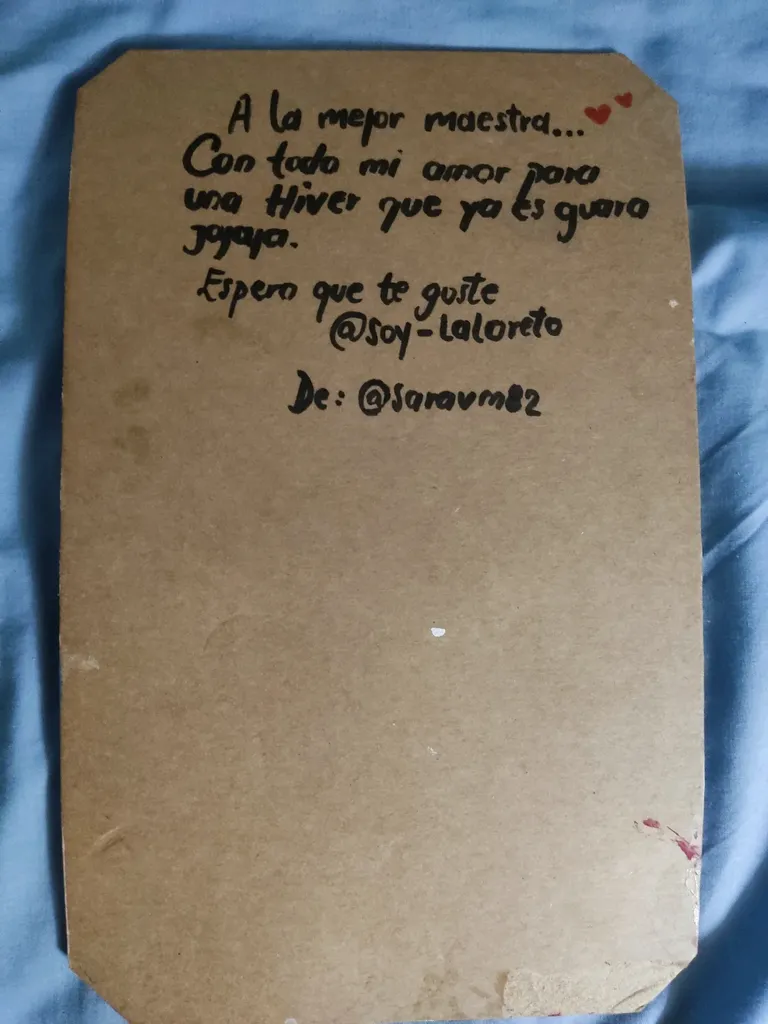 A la mejor maestra...
Con todo mi amor para
una Hiver que ya Es guara
jajaja.
Espero que te guste
@soy-laloreto
De: @saravm82